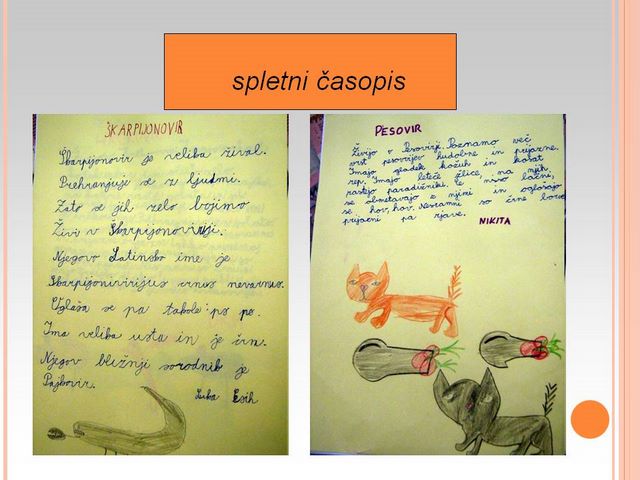 spletni časopis
ŠKARPIJONOVIR
Škarpijonovir je velika žival.
Prehranjuje se z ljudmi.
Zato se jih zelo bojimo
Živi v Škarpijonoviriji.
Njegovo Latinsko ime je
Škarpijonivirijus črnus nevarnus.
Oglaša se pa takole: po po.
Ima velika usta in je črn.
Njegov bližnji sorodnik je
Pajkovir.
Luka Esih
PESOVIR
Živijo v Pesoviriji. Poznamo več
vrst pesovirjev hudobne in prijazne.
Imajo gladek kožuh in košat
rep. Imajo leteče žlice, na njih
rastejo paradižniki. Če niso lačni,
se obmetavajo z njimi in oglašajo
se hov, hov. Nesramni so črne barve
prijazni pa rjave.
NIKITA